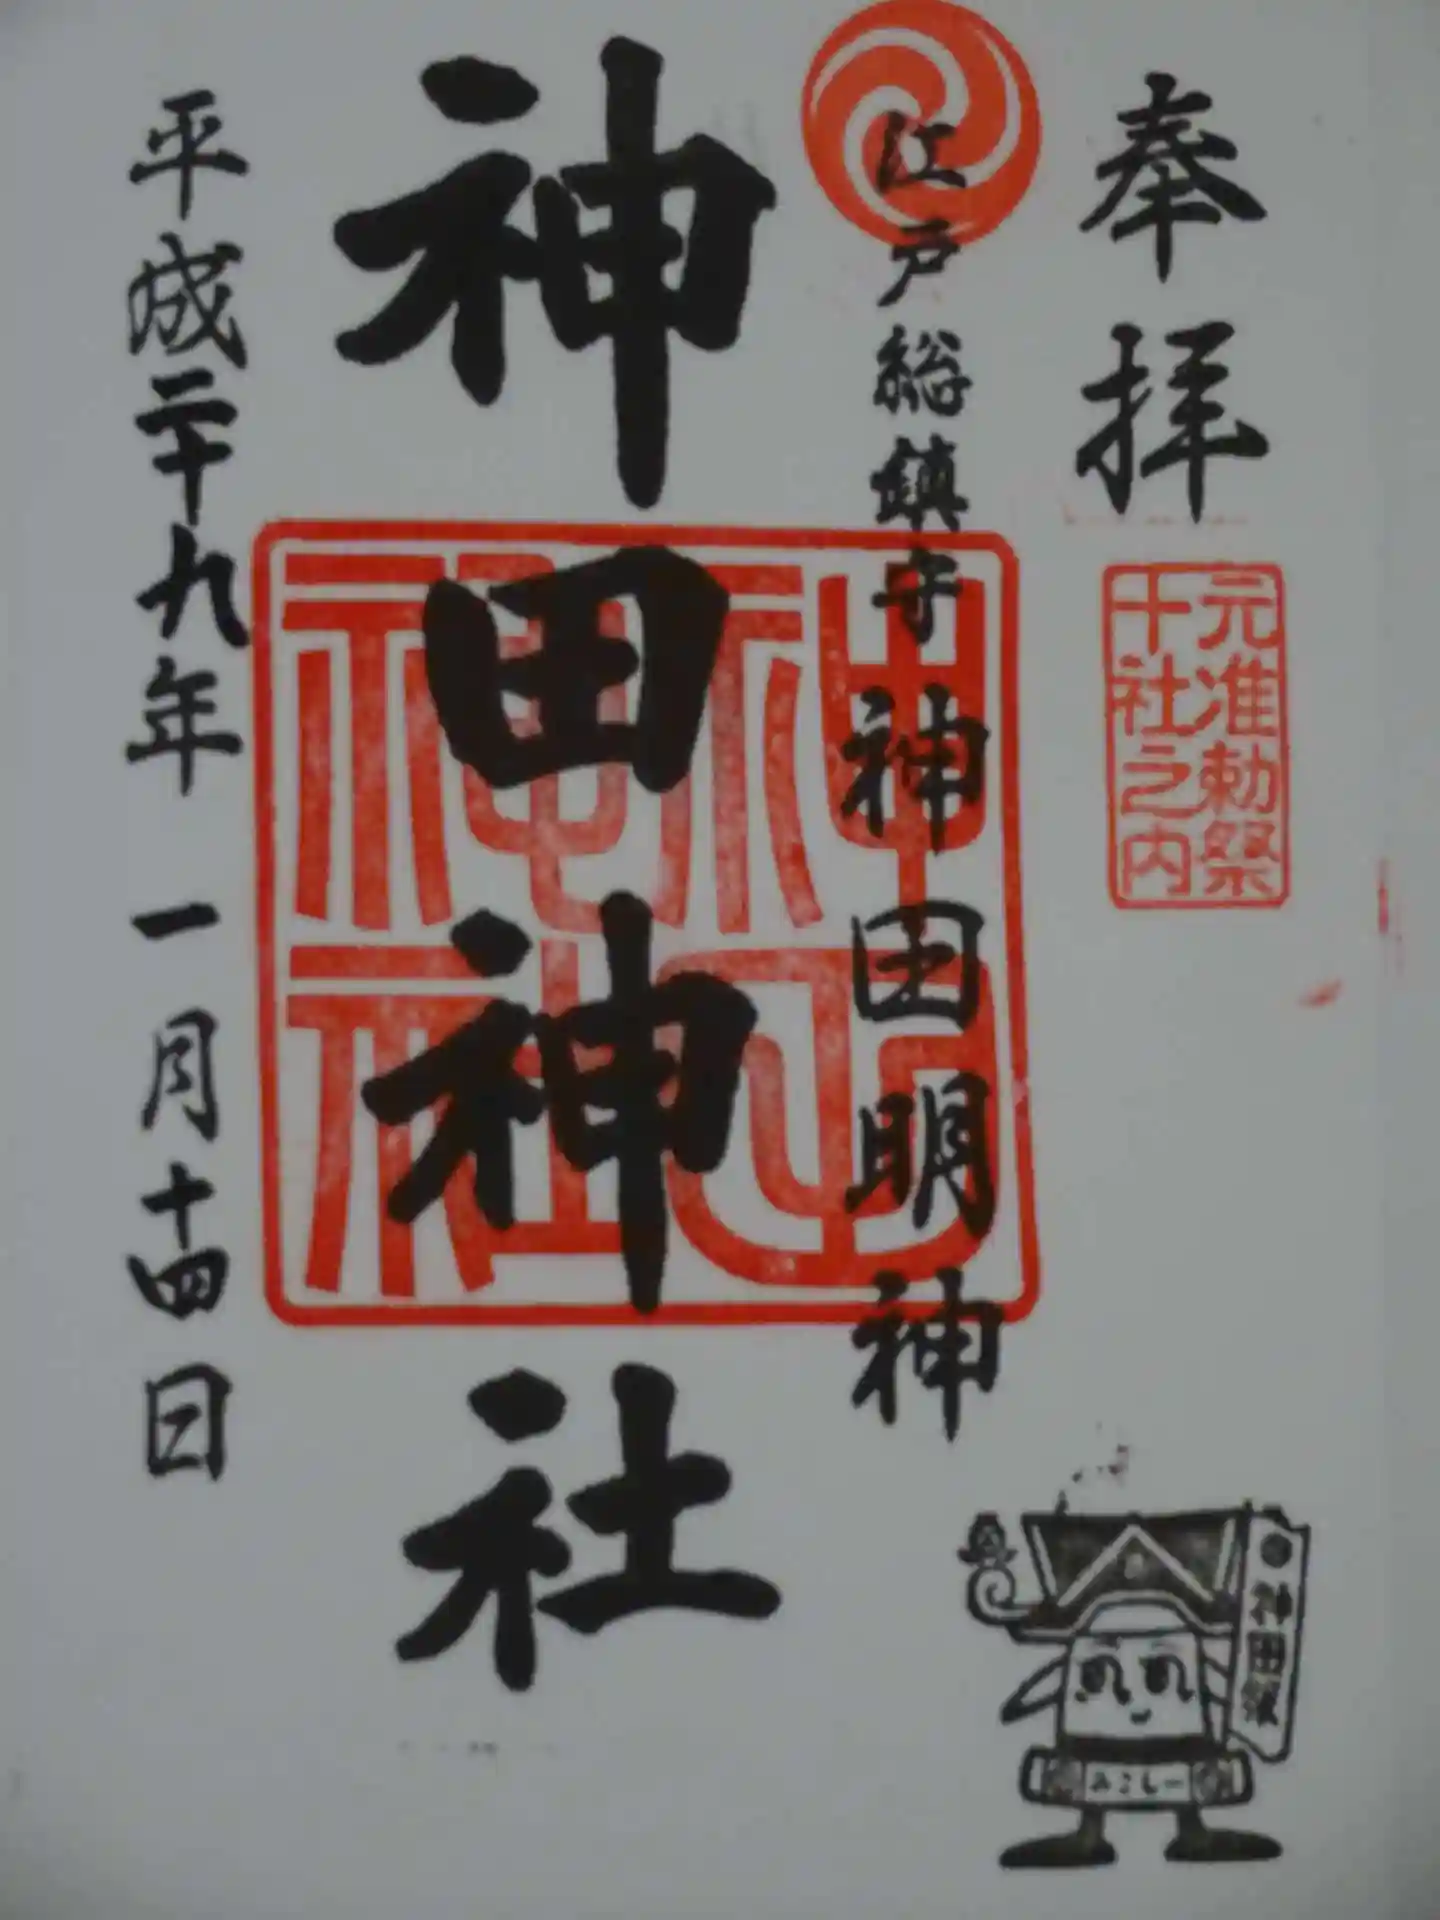 奉拝
元准勅祭
十社之内
江戸総鎮守 神田明神
神田神社
平成二十九年 一月十四日
神田祭
みこしー